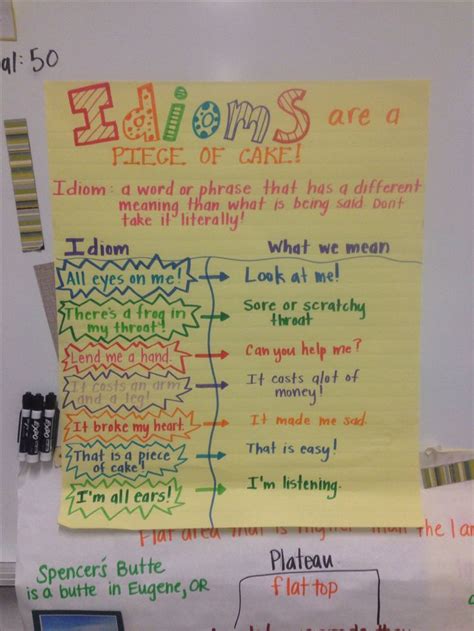 al: 50
Idioms are a
PIECE OF CAKE!
Idiom: a word or phrase that has a different
meaning than what is being said. Dont
take it literally!
Idiom What we mean
All eyes on me! Look at me!
There's a frog in
my throat! Sore or scratchy
throat
Lend me a hand. Can you help me?
It costs an arm
and a leg! It costs alot of
money!
It broke my heart. It made me sad.
That is a piece
of cake! That is easy!
I'm all ears! I'm listening.
Flat area that is higher than the lan
Spencer's Butte
is a butte in Eugene, OR
Plateau
flat top
EXPO
EXPO
EXPO